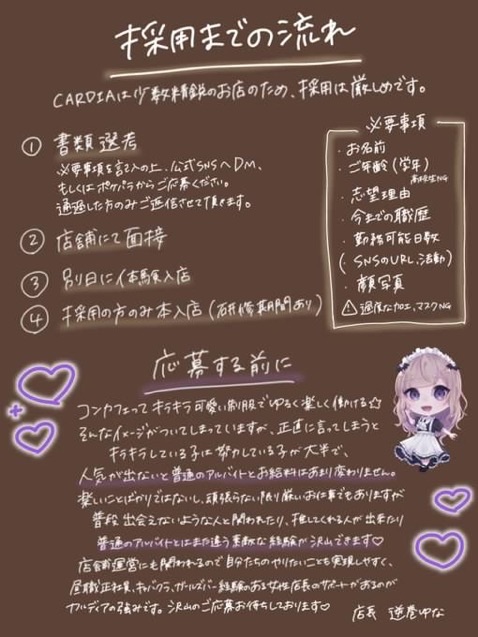 採用までの流れ
CARDIAは少数精鋭のお店のため、採用は厳しめです。
① 書類選考
必要事項を記入の上、公式SNSへDM、
もしくはポケパラからご応募ください。
通過した方のみご返信させて頂きます。
② 店舗にて面接
③ 別日に体験入店
④ 採用の方のみ本入店（研修期間あり）
必要事項
・お名前
・ご年齢（学年）
高校生NG
・志望理由
・今までの職歴
・勤務可能日数
（SNSのURL、活動）
・顔写真
⚠過度な加工、マスクNG
応募する前に
コンカフェってキラキラ可愛い制服でゆるく楽しく働ける☆
そんなイメージがついてしまっていますが、正直に言ってしまうと
キラキラしている子は努力している子が大半で、
人気が出ないと普通のアルバイトとお給料はあまり変わりません。
楽しいことばかりではないし、頑張らない限り厳しいお仕事でもありますが
普段出会えないような人と関われたり、推してくれる人が出来たり
普通のアルバイトとはまた違う素敵な経験が沢山できます♡
店舗運営にも関われるので自分たちのやりたいことも実現しやすく、
昼職正社員、キャバクラ、ガールズバー経験のある女性店長のサポートがあるのが
カルディアの強みです。沢山のご応募お待ちしております♡
店長 逆巻ゆな